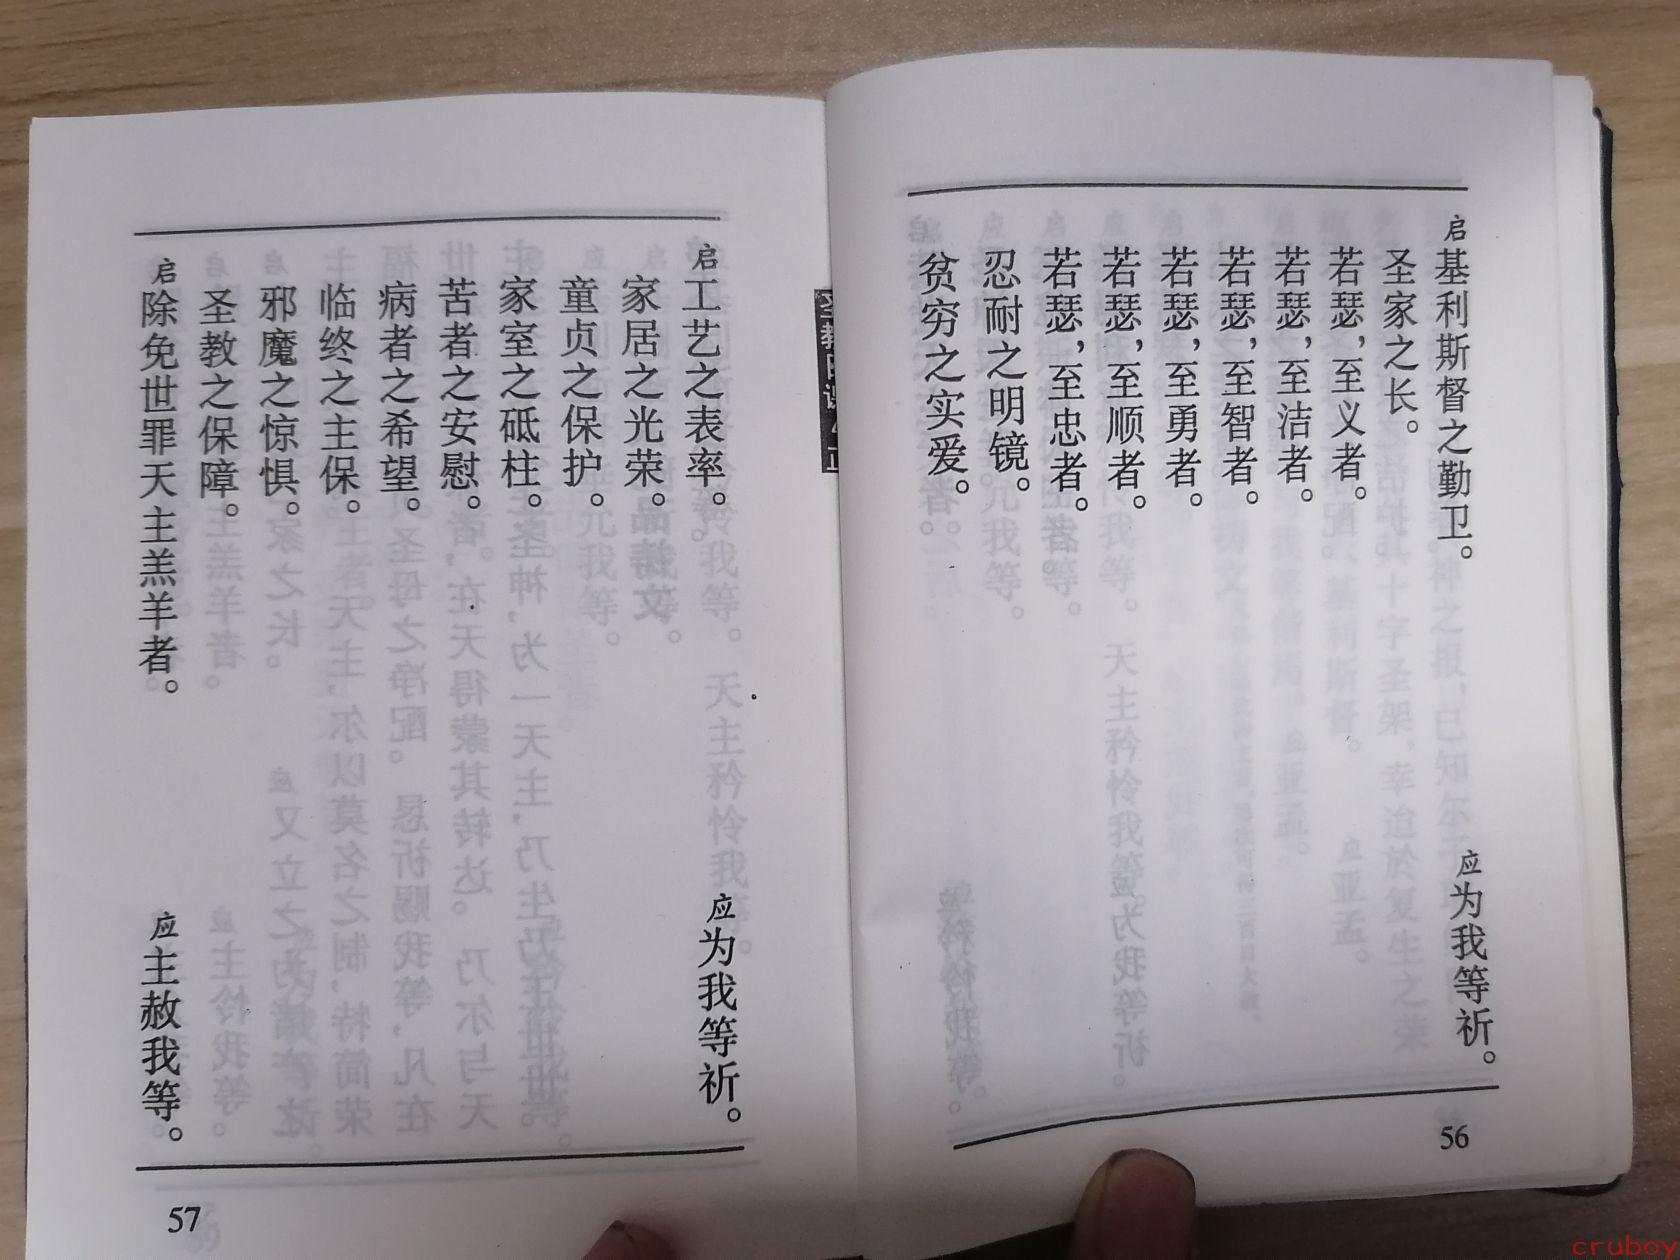 启基利斯督之勤卫。 应为我等祈。
圣家之长。
若瑟，至义者。
若瑟，至洁者。
若瑟，至智者。
若瑟，至勇者。
若瑟，至顺者。
若瑟，至忠者。
忍耐之明镜。
贫穷之实爱。
56
启工艺之表率。 应为我等祈。
家居之光荣。
童贞之保护。
家室之砥柱。
苦者之安慰。
病者之希望。
临终之主保。
邪魔之惊惧。
圣教之保障。
启除免世罪天主羔羊者。 应主赦我等。
57
cruboy